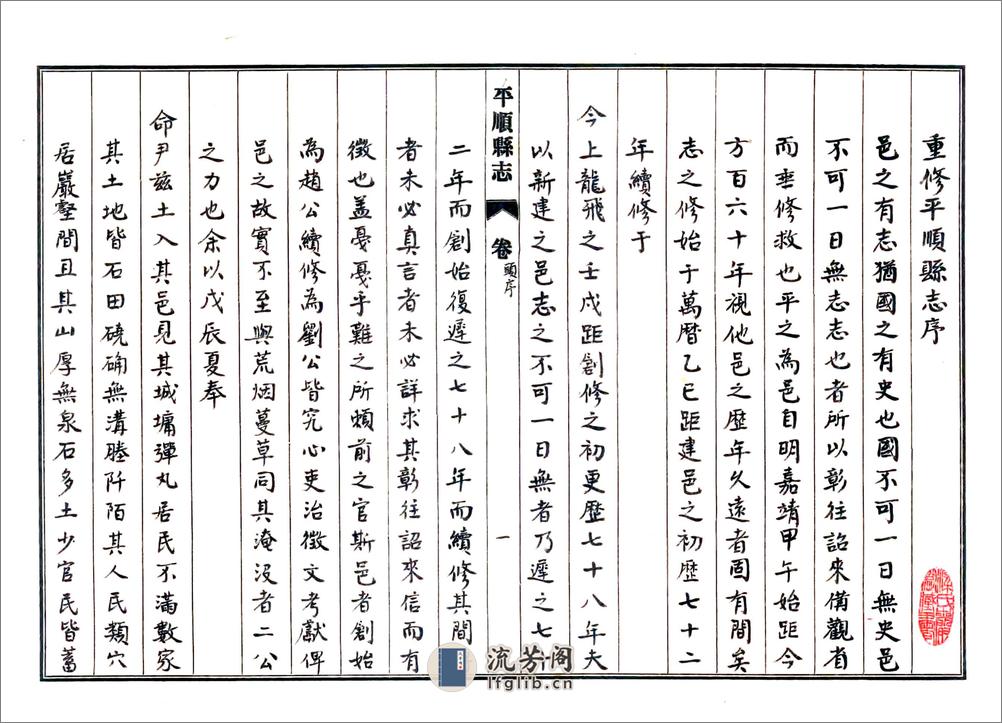 重修平順縣志序
邑之有志猶國之有史也國不可一日無史邑
不可一日無志志也者所以彰往詔來備觀省
而垂修救也平之為邑自明嘉靖甲午始距今
方百六十年視他邑之歷年久遠者固有間矣
志之修始于萬曆乙巳距建邑之初歷七十二
年續修于
今上龍飛之壬戌距創修之初更歷七十八年夫
以新建之邑志之不可一日無者乃遲之七十
平順縣志 卷頭序 一
二年而創始復遲之七十八年而續修其間
者未必真言者未必詳求其彰往詔來信而有
徵也蓋戛戛乎難之所頼前之官斯邑者創始
為趙公續修為劉公皆究心吏治徵文考獻俾
邑之故實不至與荒烟蔓草同其淹没者二公
之力也余以戊辰夏奉
命尹兹土入其邑見其城墉彈丸居民不滿數家
其土地皆石田磽确無溝塍阡陌其人民類穴
居巖壑間且其山厚無泉石多土少官民皆蓄
流芳阁
lfglib.cn